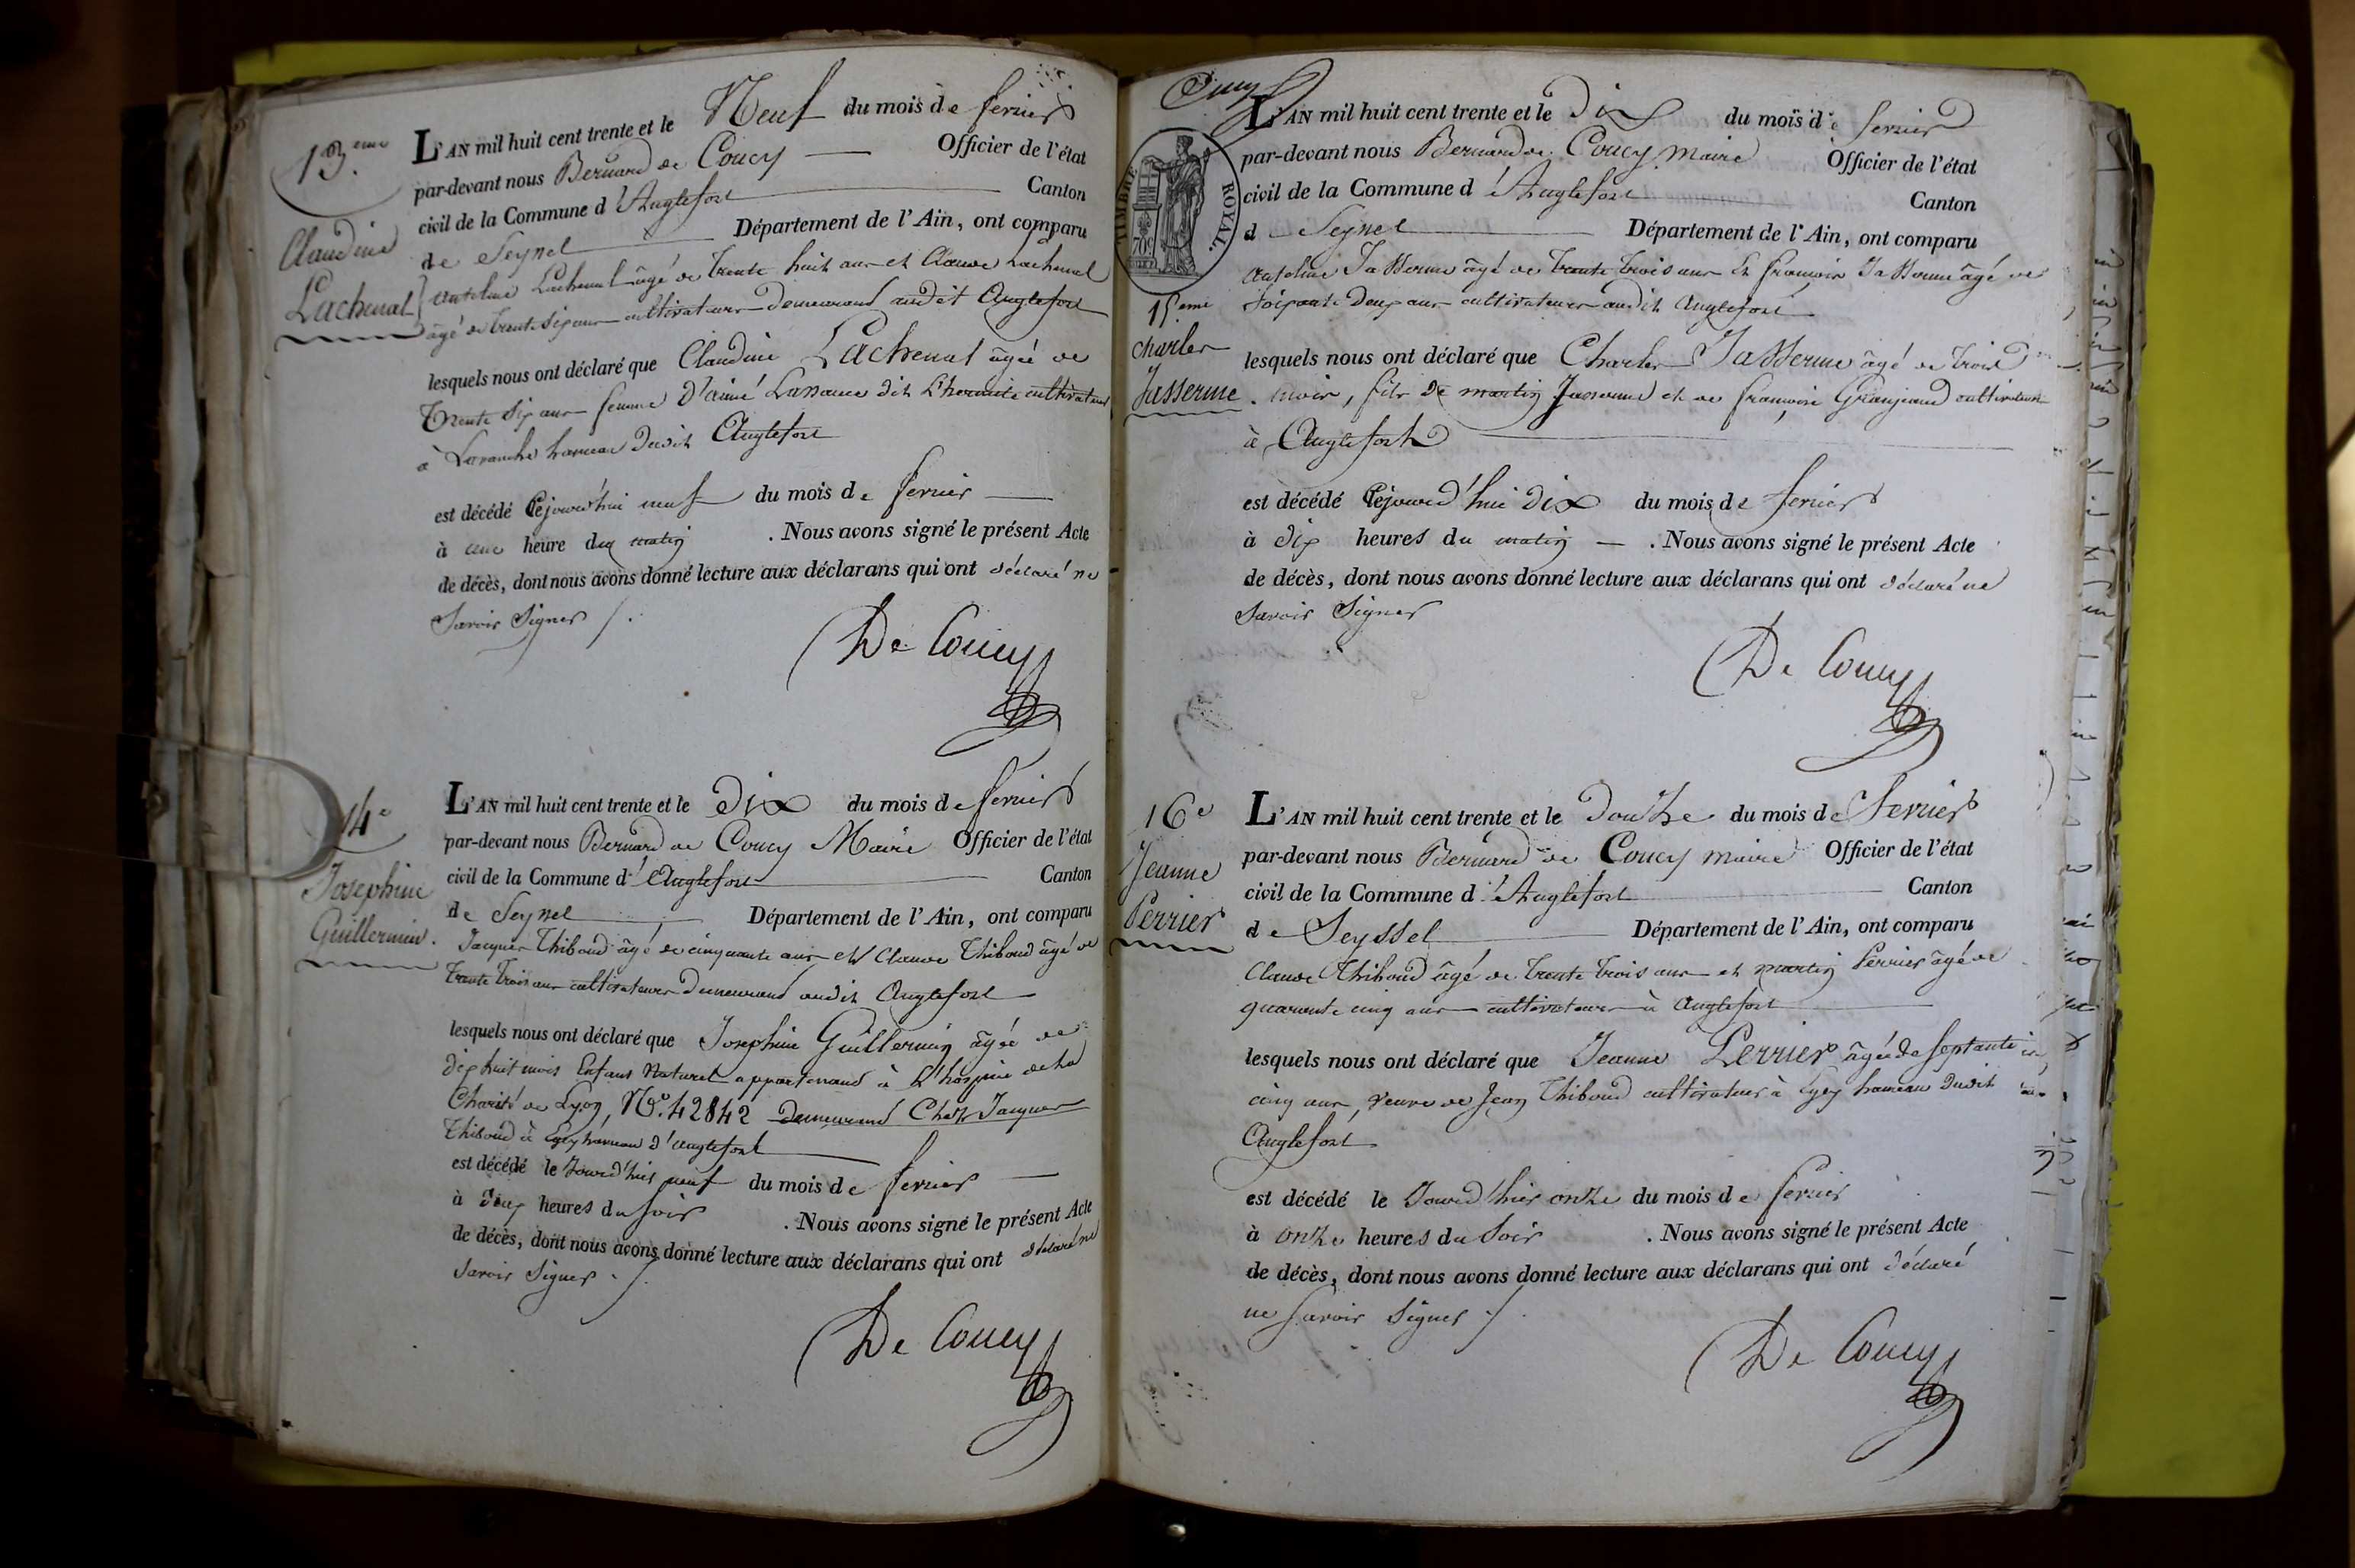 13.eme
Claudine
Lachenal
L'AN mil huit cent trente et le Neuf du mois de fevrier
par-devant nous Bernard de Coucy Officier de l'état
civil de la Commune d'Anglefort Canton
de Seyssel Département de l'Ain, ont comparu
antelme Lachenal âgé de trente huit ans et Claude Lachenal
âgé de trente six ans cultivateurs demeurans audit Anglefort
lesquels nous ont déclaré que Claudine Lachenal âgée de
trente six ans femme d'aimé dit L'hermite cultivateur
à hameau dudit Anglefort
est décédé Cejourd'hui neuf du mois de fevrier
à une heure du matin . Nous avons signé le présent Acte
de décès, dont nous avons donné lecture aux déclarans qui ont déclaré ne
Savoir Signer /.
De Coucy
14e
Josephine
Guillermin.
L'AN mil huit cent trente et le dix du mois de fevrier
par-devant nous Bernard de Coucy Maire Officier de l'état
civil de la Commune d'Anglefort Canton
de Seyssel Département de l'Ain, ont comparu
Jacques Thiboud âgé de cinquante ans et Claude Thiboud âgé de
trente trois ans cultivateurs demeurans audit Anglefort
lesquels nous ont déclaré que Josephine Guillermin âgée de
dix huit mois Enfant Naturel appartenand à L'hospice de la
Charité de Lyon, No. 42842 demeurand Chez Jacques
Thiboud à hameau d'anglefort
est décédé le Jourd'hier neuf du mois de fevrier
à deux heures du soir . Nous avons signé le présent Acte
de décès, dont nous avons donné lecture aux déclarans qui ont déclaré ne
Savoir Signer ./.
De Coucy
TIMBRE ROYAL
70c
15eme
Charles
Jasserme.
L'AN mil huit cent trente et le Dix du mois de fevrier
par-devant nous Bernard de Coucy maire Officier de l'état
civil de la Commune d'Anglefort Canton
d Seyssel Département de l'Ain, ont comparu
antelme Jasserme âgé de trente trois ans Et françois Jasserme âgé de
soixante deux ans cultivateurs audit Anglefort
lesquels nous ont déclaré que Charles Jasserme âgé de trois
mois, fils de martin Jasserme et de françoise Granjeand cultivateurs
à Anglefort
est décédé Cejourd'hui dix du mois de fevrier
à dix heures du matin . Nous avons signé le présent Acte
de décès, dont nous avons donné lecture aux déclarans qui ont déclaré ne
Savoir Signer
De Coucy
16e
Jeanne
Perrier
L'AN mil huit cent trente et le Douze du mois de Fevrier
par-devant nous Bernard de Coucy maire Officier de l'état
civil de la Commune d'Anglefort Canton
de Seyssel Département de l'Ain, ont comparu
Claude Thiboud âgé de trente trois ans et martin Perrier âgé de
quarante cinq ans cultivateurs à Anglefort
lesquels nous ont déclaré que Jeanne Perrier âgée de septante
cinq ans, veuve de Jean Thiboud cultivateur à hameau dudit
Anglefort
est décédé le Jourd'hier onze du mois de fevrier
à onze heures du Soir . Nous avons signé le présent Acte
de décès, dont nous avons donné lecture aux déclarans qui ont déclaré
ne Savoir Signer ./.
De Coucy